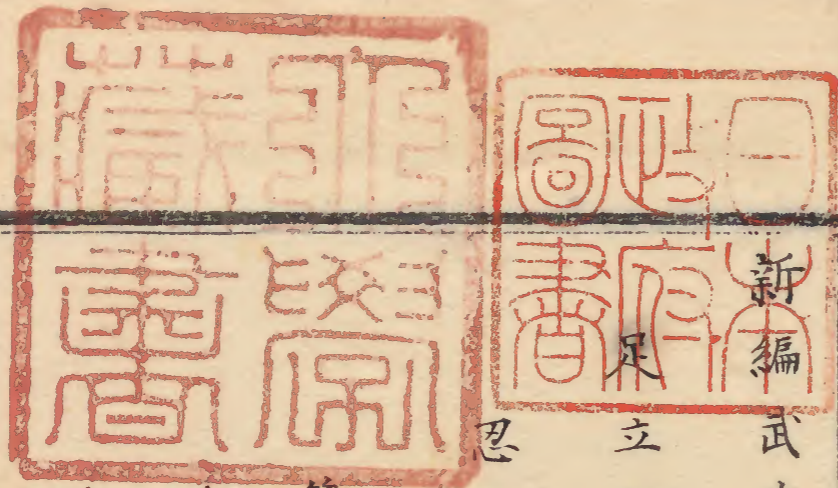 日本
政府
圖書
學
藏書
新編武
足立
忍